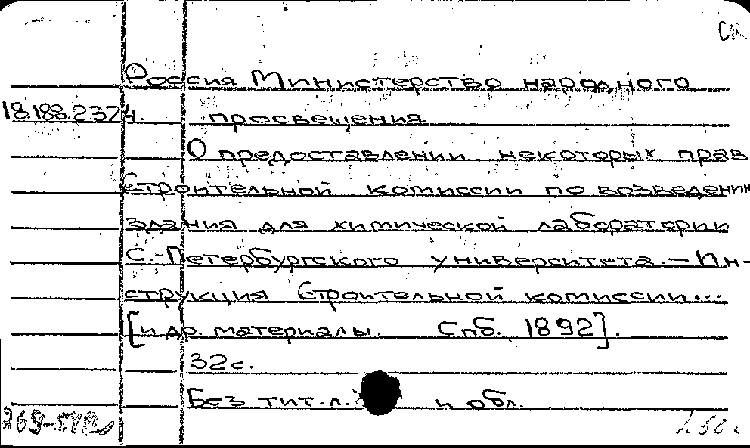 Россия Министерство народного
18.188.2.374. просвещения
О предоставлении некоторых прав
строительной комиссии по возведении
здания для химической лаборатории
С.-Петербургского университета. – Ин-
струкция Строительной комиссии...
[и др. материалы. Спб. 1892].
32с.
Без тит. л. и обл.